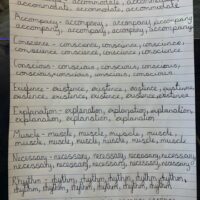 accommodate, accommodate, accommodate
accommodate, accommodate, accommodate
Accompany - accompany, accompany, accompany
accompany, accompany, accompany, accompany
Conscience - conscience, conscience, conscience
conscience, conscience, conscience, conscience
Conscious - conscious, conscious, conscious,
conscious, conscious, conscious, conscious
Existence - existence, existence, existence, existence
existence, existence, existence, existence
Explanation - explanation, explanation, explanation
explanation, explanation, explanation
Muscle - muscle, muscle, muscle, muscle,
muscle, muscle, muscle, muscle, muscle
Necessary - necessary, necessary, necessary,
necessary, necessary, necessary, necessary
Rhythm - rhythm, rhythm, rhythm, rhythm,
rhythm, rhythm, rhythm, rhythm, rhythm